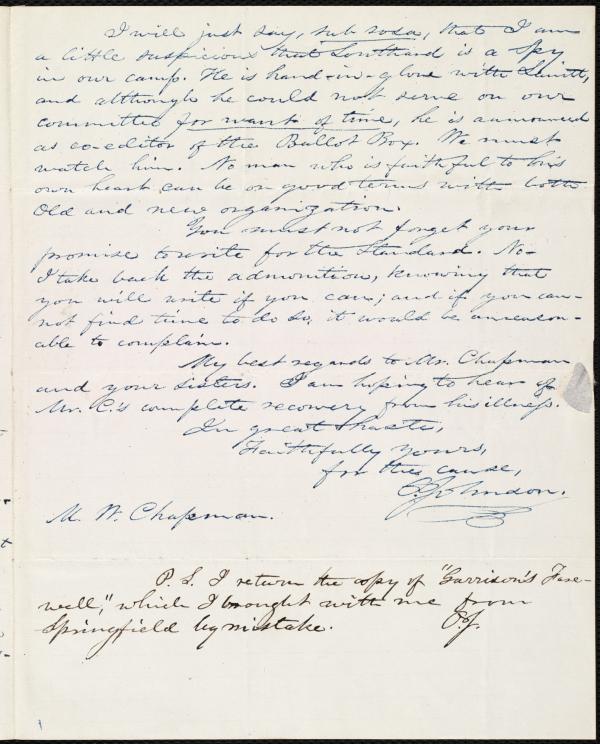 I will just say, sub rosa, that I am
a little suspicious that Southard is a spy
in our camp. He is hand-in-glove with Leavitt,
and although he could not serve on our
committee for want of time, he is announced
as co-editor of the Ballot Box. We must
watch him. No man who is faithful to his
own heart can be on good terms with both
old and new organization.
You must not forget your
promise to write for the Standard. No—
I take back the admonition, knowing that
you will write if you can; and if you can-
not find time to do so, it would be unreason-
able to complain.
My best regards to Mr. Chapman
and your sisters. I am hoping to hear of
Mr. C.'s complete recovery from his illness.
In great haste,
Faithfully yours,
for the cause,
O. Johnson.
M. W. Chapman.
P. S. I return the copy of "Garrison's Fare-
well," which I brought with me from
Springfield by mistake. O.J.